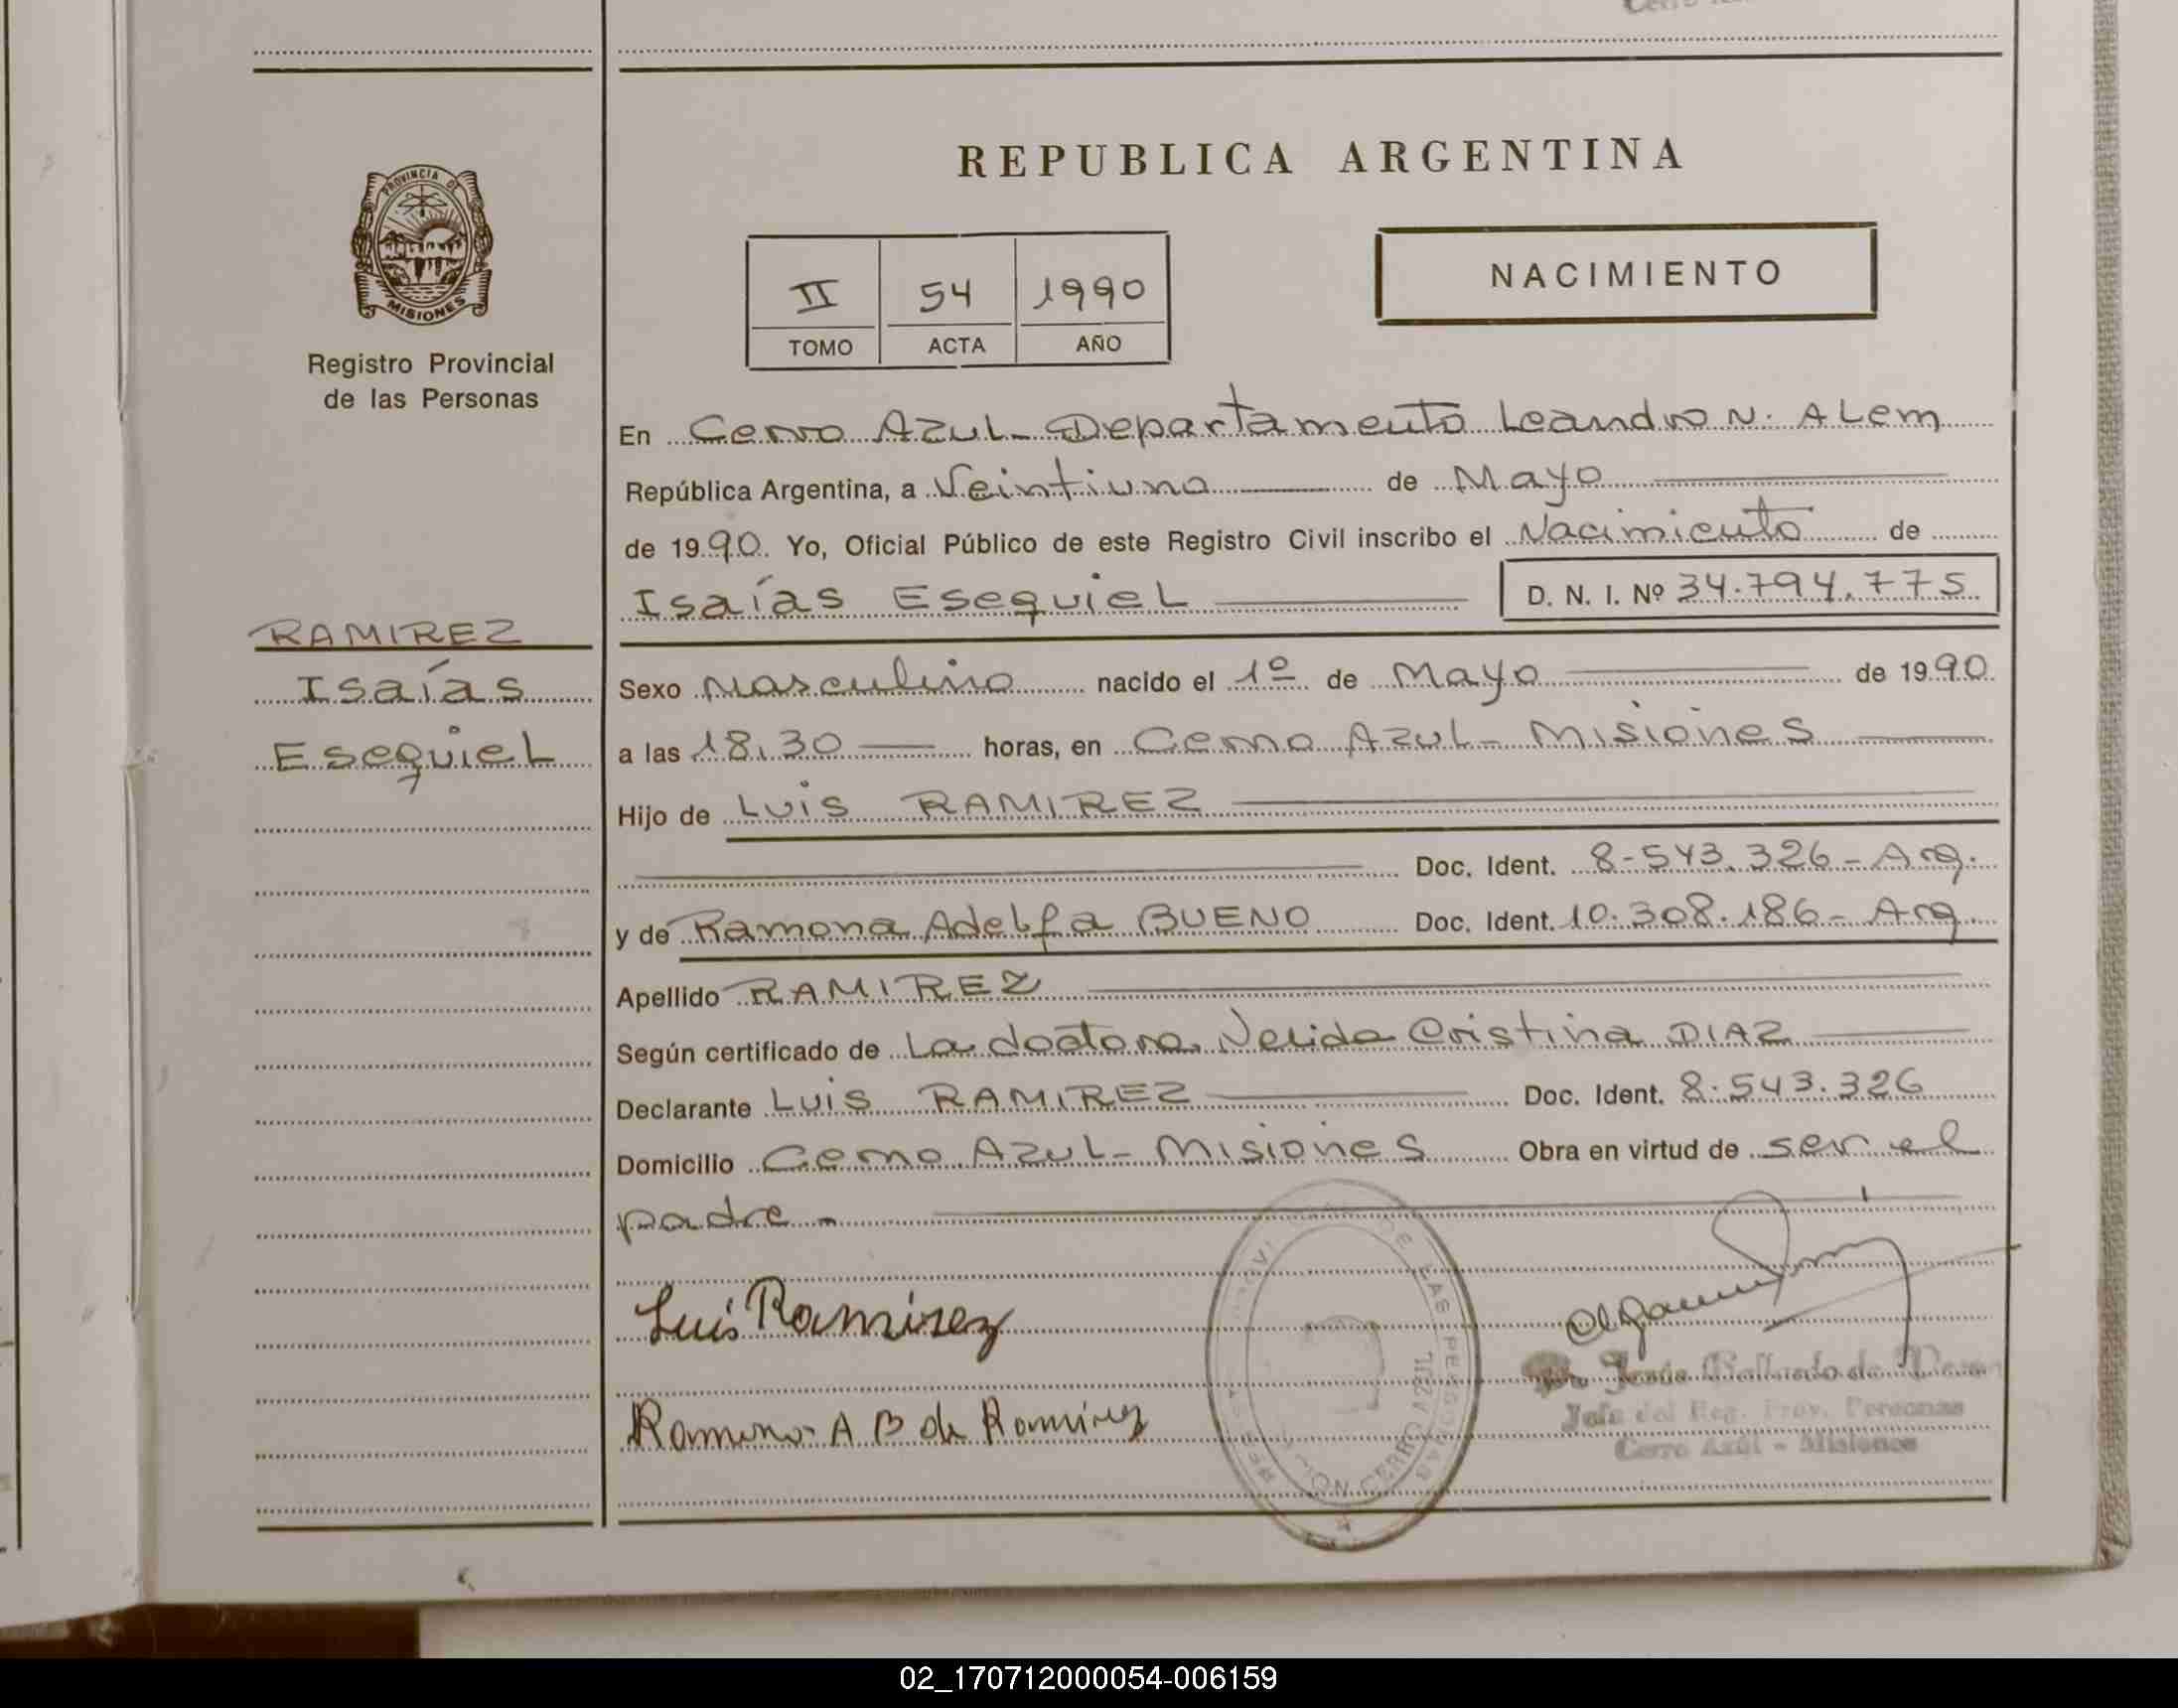 REPUBLICA ARGENTINA
PROVINCIA DE
MISIONES
Registro Provincial
de las Personas
II 54 1990
TOMO ACTA AÑO
NACIMIENTO
En Cerro Azul - Departamento Leandro N. Alem
República Argentina, a Veintiuno de Mayo
de 1990. Yo, Oficial Público de este Registro Civil inscribo el Nacimiento de
Isaías Esequiel D. N. I. Nº 34.794.775
RAMIREZ
Isaías
Esequiel
Sexo Masculino nacido el 1º de Mayo de 1990
a las 18,30 horas, en Cerro Azul - Misiones
Hijo de Luis RAMIREZ
Doc. Ident. 8-543.326 - Arg.
y de Ramona Adelfa BUENO Doc. Ident. 10.308.186 - Arg.
Apellido RAMIREZ
Según certificado de La doctora Nelida Cristina DIAZ
Declarante Luis RAMIREZ Doc. Ident. 8.543.326
Domicilio Cerro Azul - Misiones Obra en virtud de ser el
padre -
Luis Ramirez
Ramona A B de Ramirez
DE LAS PERSONAS
CERRO AZUL
Jefe del Reg. Prov. Personas
Cerro Azul - Misiones
02_170712000054-006159